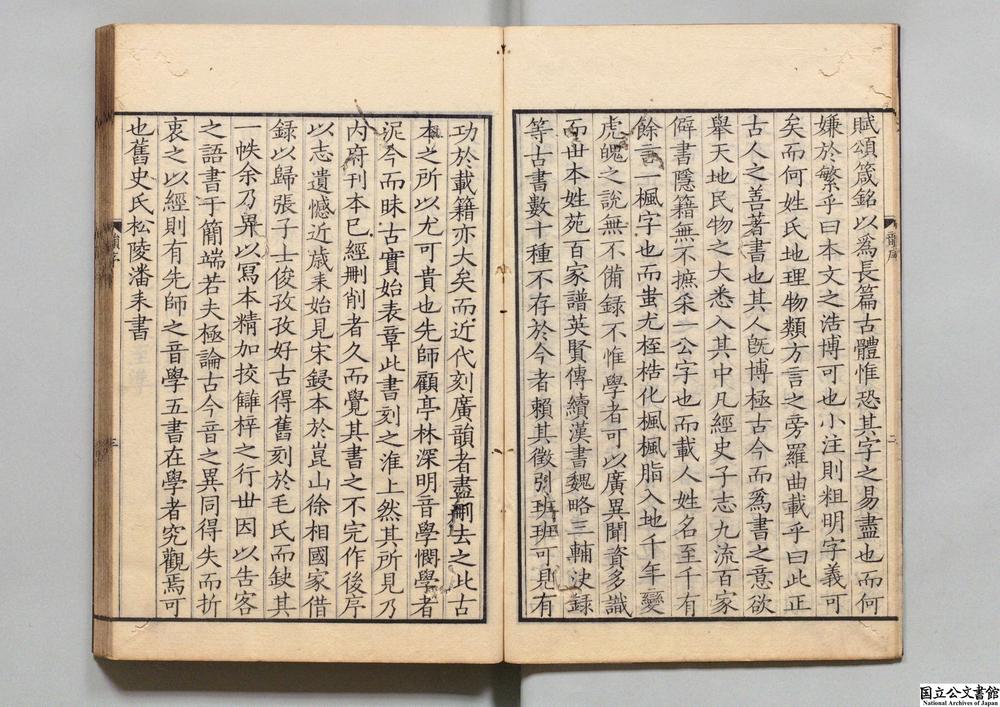 賦頌箴銘以爲長篇古體惟恐其字之易盡也而何
嫌於繁乎曰本文之浩博可也小注則粗明字義可
矣而何姓氏地理物類方言之旁羅曲載乎曰此正
古人之善著書也其人旣博極古今而爲書之意欲
舉天地民物之大悉入其中凡經史子志九流百家
僻書隱籍無不摭采一公字也而載人姓名至千有
餘言一楓字也而蚩尤桎梏化楓楓脂入地千年變
虎魄之說無不備録不惟學者可以廣異聞資多識
而世本姓苑百家譜英賢傳續漢書魏略三輔決録
等古書數十種不存於今者賴其徵引班班可見有
韻序
二
功於載籍亦大矣而近代刻廣韻者盡刪去之此古
本之所以尤可貴也先師顧亭林深明音學憫學者
泥今而昧古實始表章此書刻之淮上然其所見乃
内府刊本已經刪削者久而覺其書之不完作後序
以志遺憾近歳耒始見宋鋟本於崑山徐相國家借
録以歸張子士俊孜孜好古得舊刻於毛氏而缺其
一帙余乃畀以冩本精加挍讎梓之行世因以告客
之語書于簡端若夫極論古今音之異同得失而折
衷之以經則有先師之音學五書在學者究觀焉可
也舊史氏松陵潘耒書
韻序
三
国立公文書館
National Archives of Japan